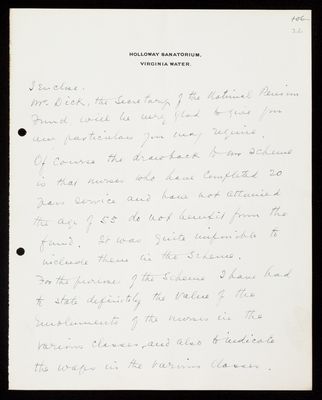 HOLLOWAY SANATORIUM,
VIRGINIA WATER.
I enclose.
Mr. Dick, the Secretary of the National Pension
Fund will be very glad to give you
any particulars you may require.
Of course the drawback to our scheme
is that nurses who have completed 20
years service and have not attained
the age of 55 do not benefit from the
fund. It was quite impossible to
include them in the Scheme.
For the purpose of the Scheme I have had
to state definitely the value of the
Emoluments of the nurses in the
various classes, and also to indicate
the wages in the various classes.